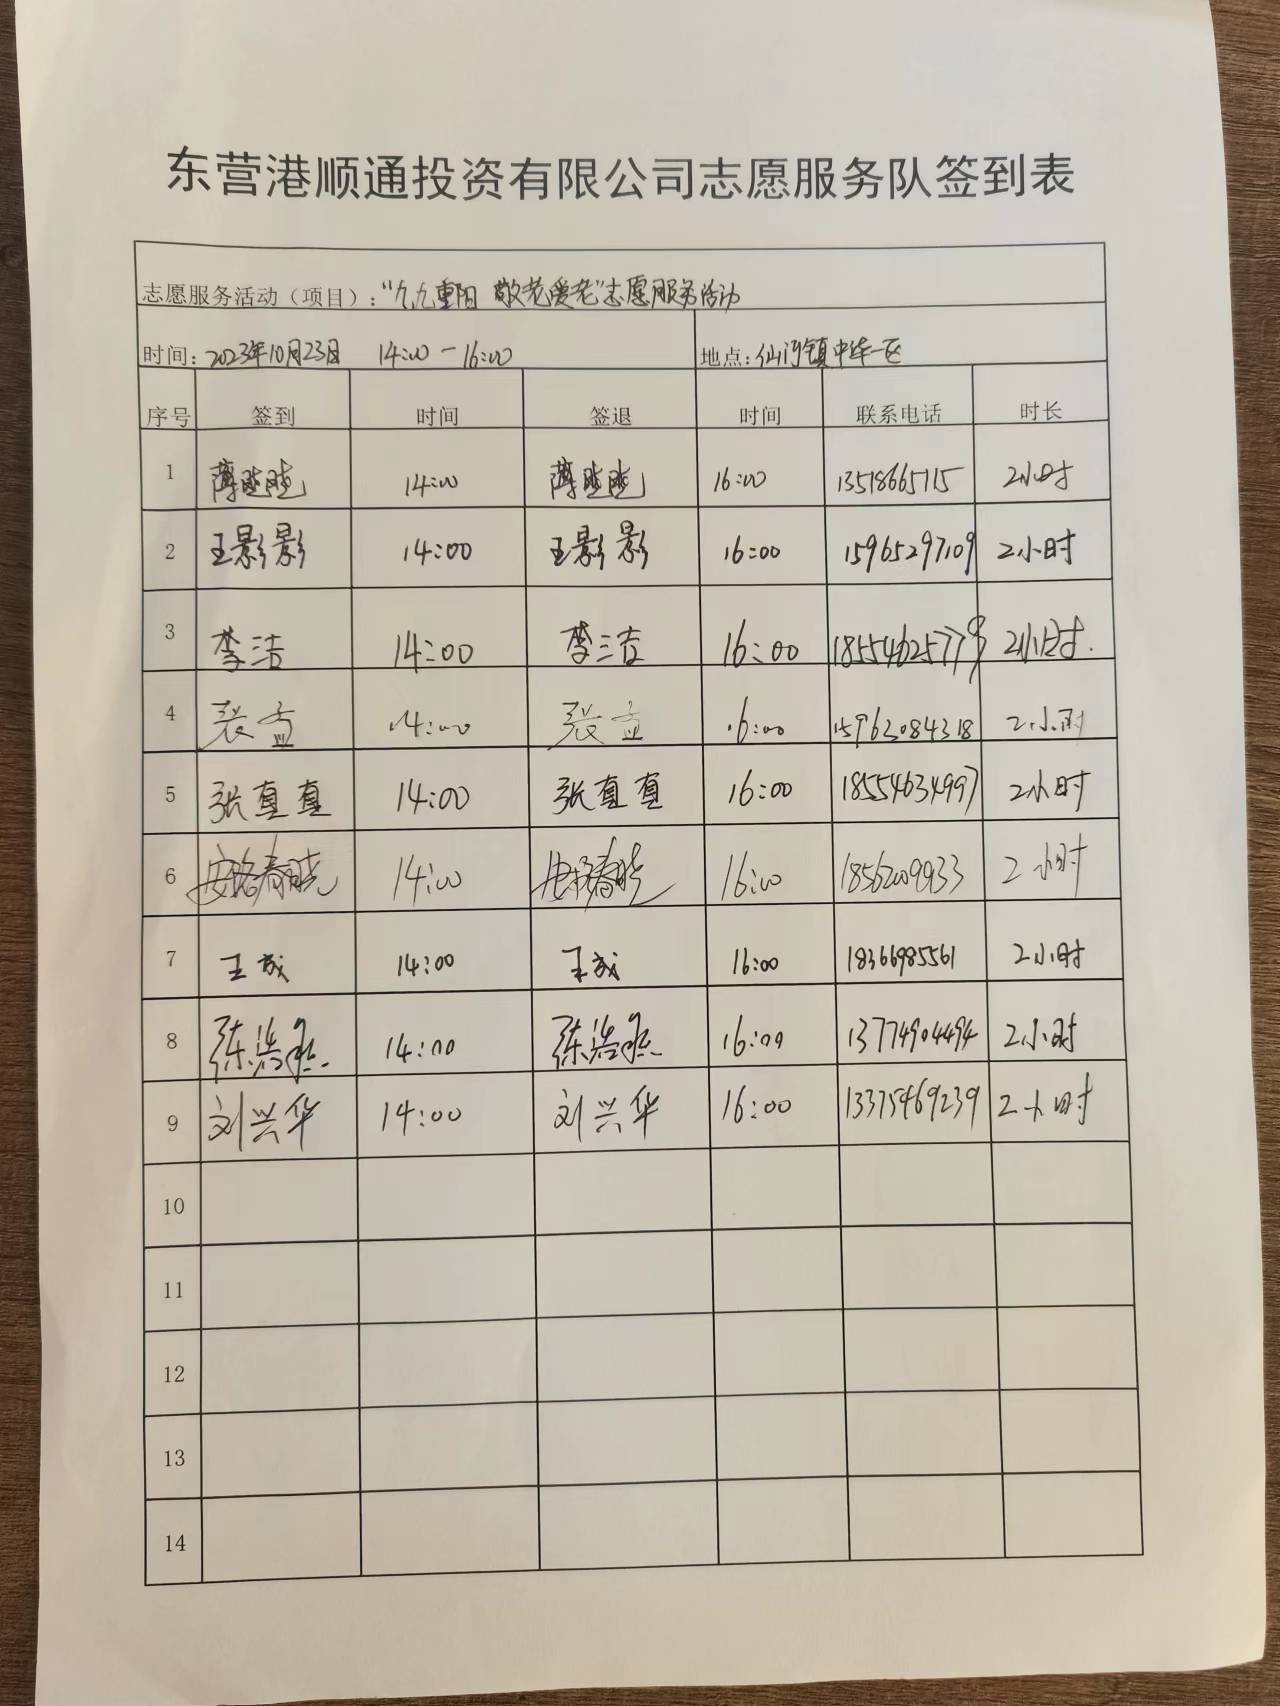 东营港顺通投资有限公司志愿服务队签到表
志愿服务活动（项目）："九九重阳 敬老爱老"志愿服务活动
时间：2023年10月23日 14:00-16:00 地点：仙河镇中华一区
序号 签到 时间 签退 时间 联系电话 时长
1 薄 14:00 薄 16:00 13518665715 2小时
2 王影影 14:00 王影影 16:00 15965297109 2小时
3 李洁 14:00 李洁 16:00 18554625779 2小时.
4 张 14:00 张 16:00 15963084318 2小时
5 张直直 14:00 张直直 16:00 18554634997 2小时
6 春晓 14:00 春晓 16:00 2小时
7 王成 14:00 王成 16:00 18366985561 2小时
8 陈浩然 14:00 陈浩然 16:00 13774904494 2小时
9 刘兴华 14:00 刘兴华 16:00 13375469239 2小时
10
11
12
13
14